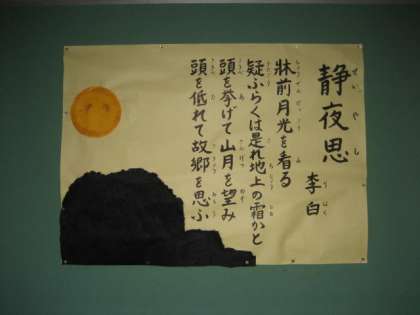 静夜思
李白
牀前月光を看る
疑ふらくは是れ地上の霜かと
頭を挙げて山月を望み
頭を低れて故郷を思ふ